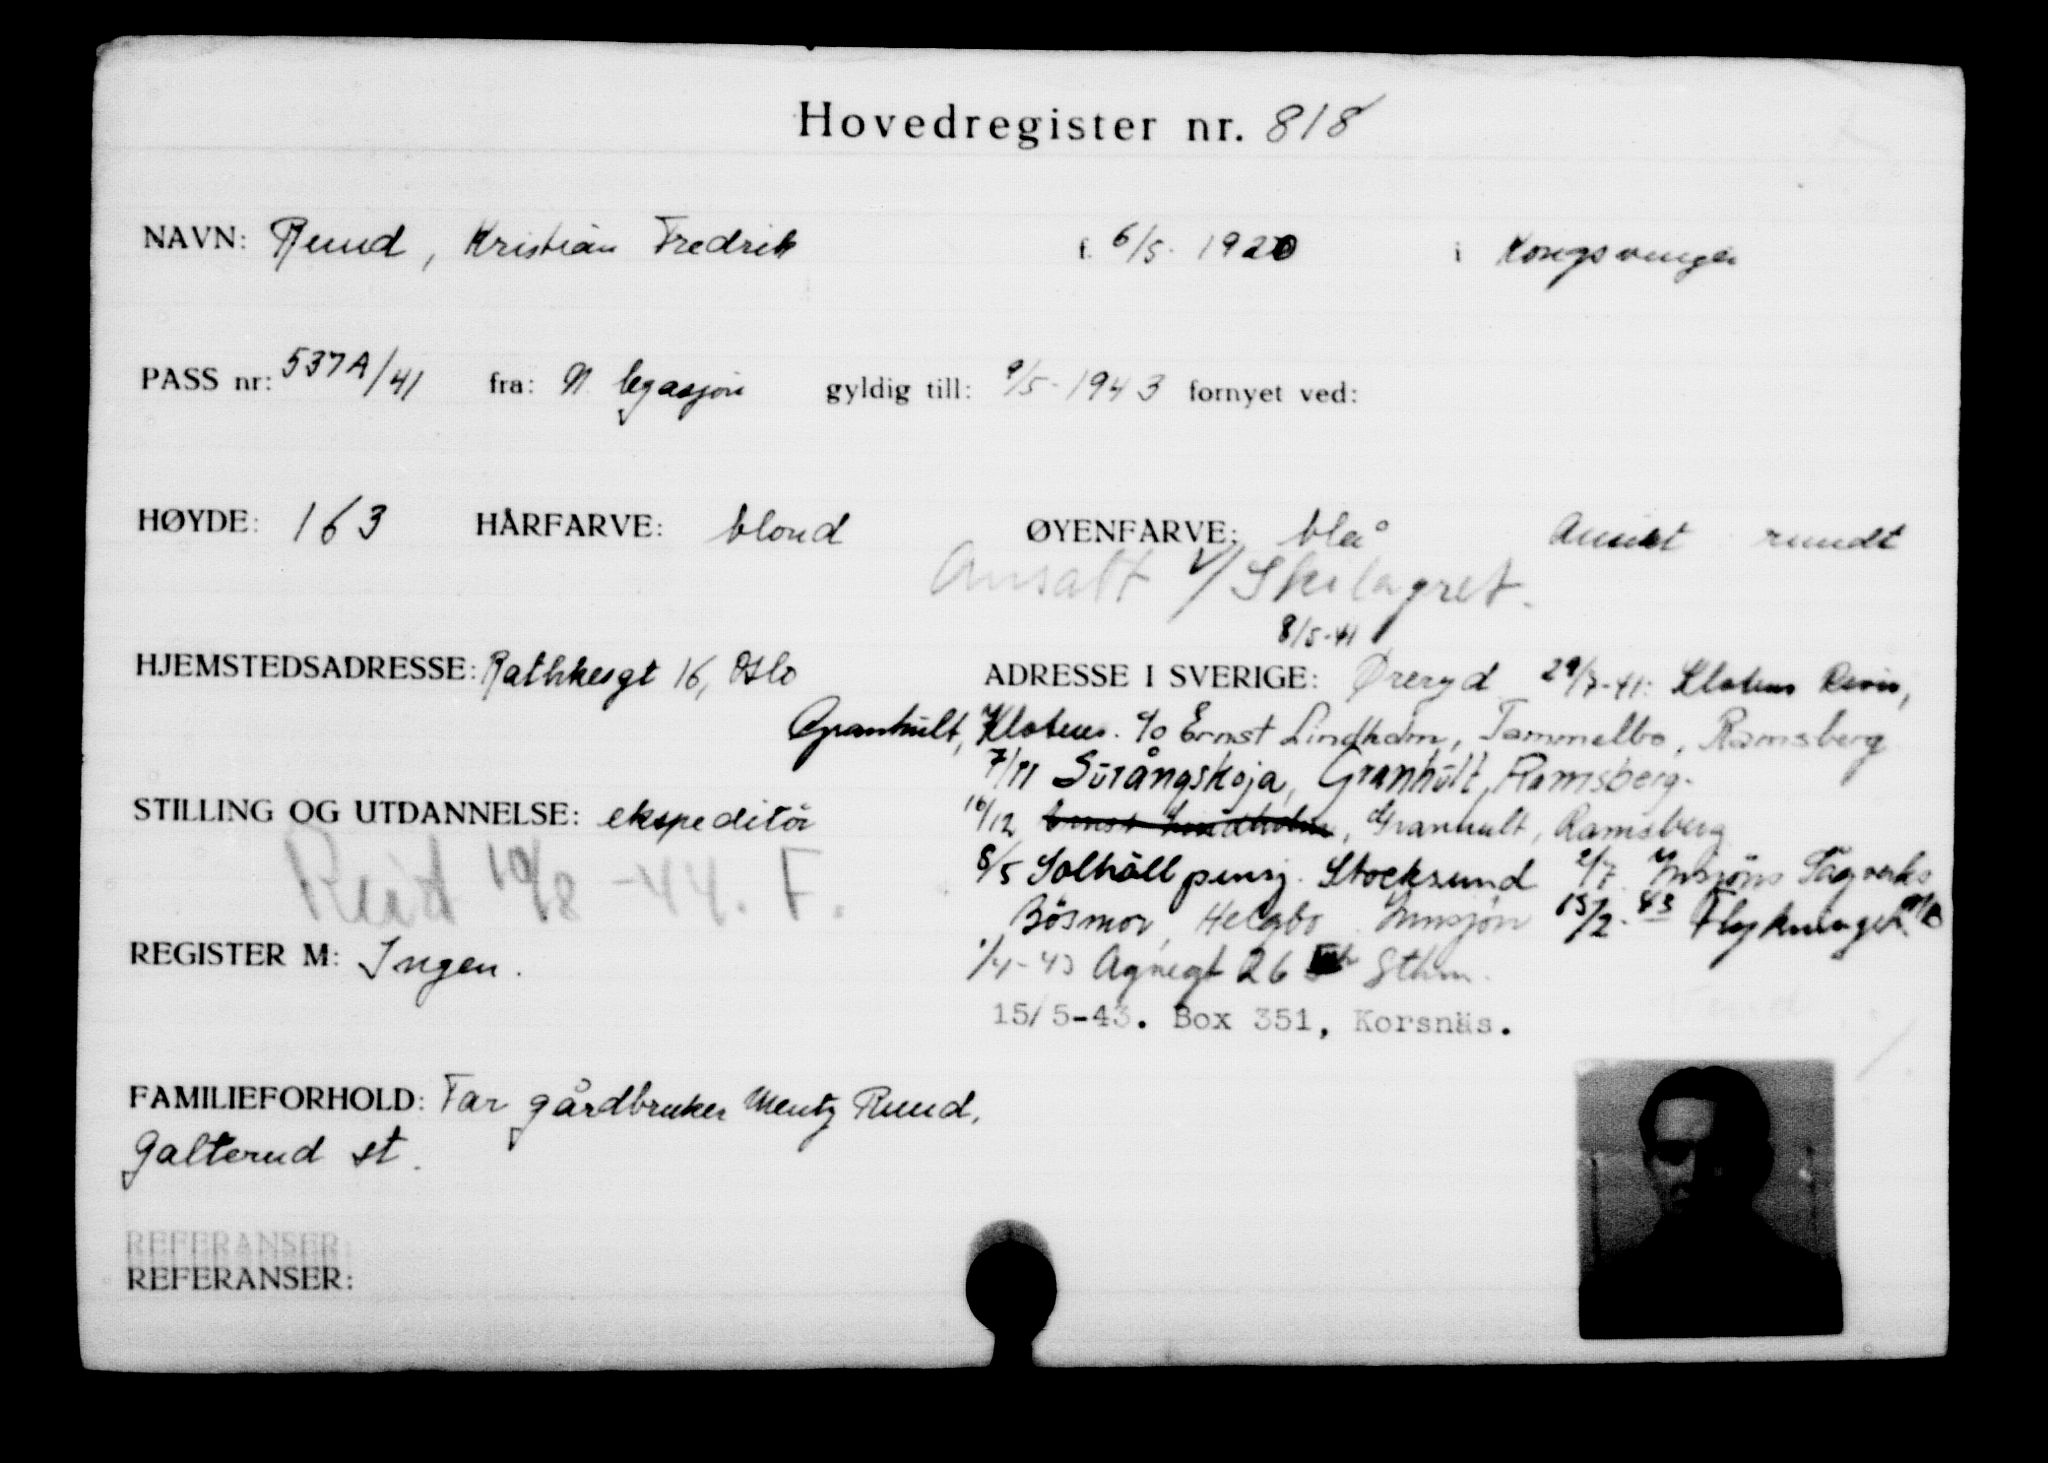 Hovedregister nr. 818
NAVN: Ruud, Kristian Fredrik f. 6/5. 1920 i Kongsvinger
PASS nr: 537A/41 fra: N. legasjon gyldig till: 9/5-1943 fornyet ved:
HØYDE: 163 HÅRFARVE: blond ØYENFARVE: blå Ansikt rundt
Ansatt v/ Skilagret.
8/5-41
HJEMSTEDSADRESSE: Rathkesgt 16, Oslo ADRESSE I SVERIGE: Øreryd 29/7-41: Klotens Revir,
Granhult, Kloten. c/o Ernst Lindholm, Tammelbo, Ramsberg
7/11 Surångskoja, Granhult, Ramsberg.
STILLING OG UTDANNELSE: ekspeditör 16/12 Ernst Lindholm, Granhult, Ramsberg
8/5 Solhäll pensj. Stocksund 2/7 Insjöns Sågverks
Reist 10/8-44. F.
Bösmor, Helgbo Innsjön 15/2-43 Flyktninge
REGISTER M: Ingen. 1/4-43 Agnegt 26 Sthm.
15/5-43. Box 351, Korsnäs.
FAMILIEFORHOLD: Far gårdbruker Mentz Ruud,
Galterud st.
REFERANSER
REFERANSER: